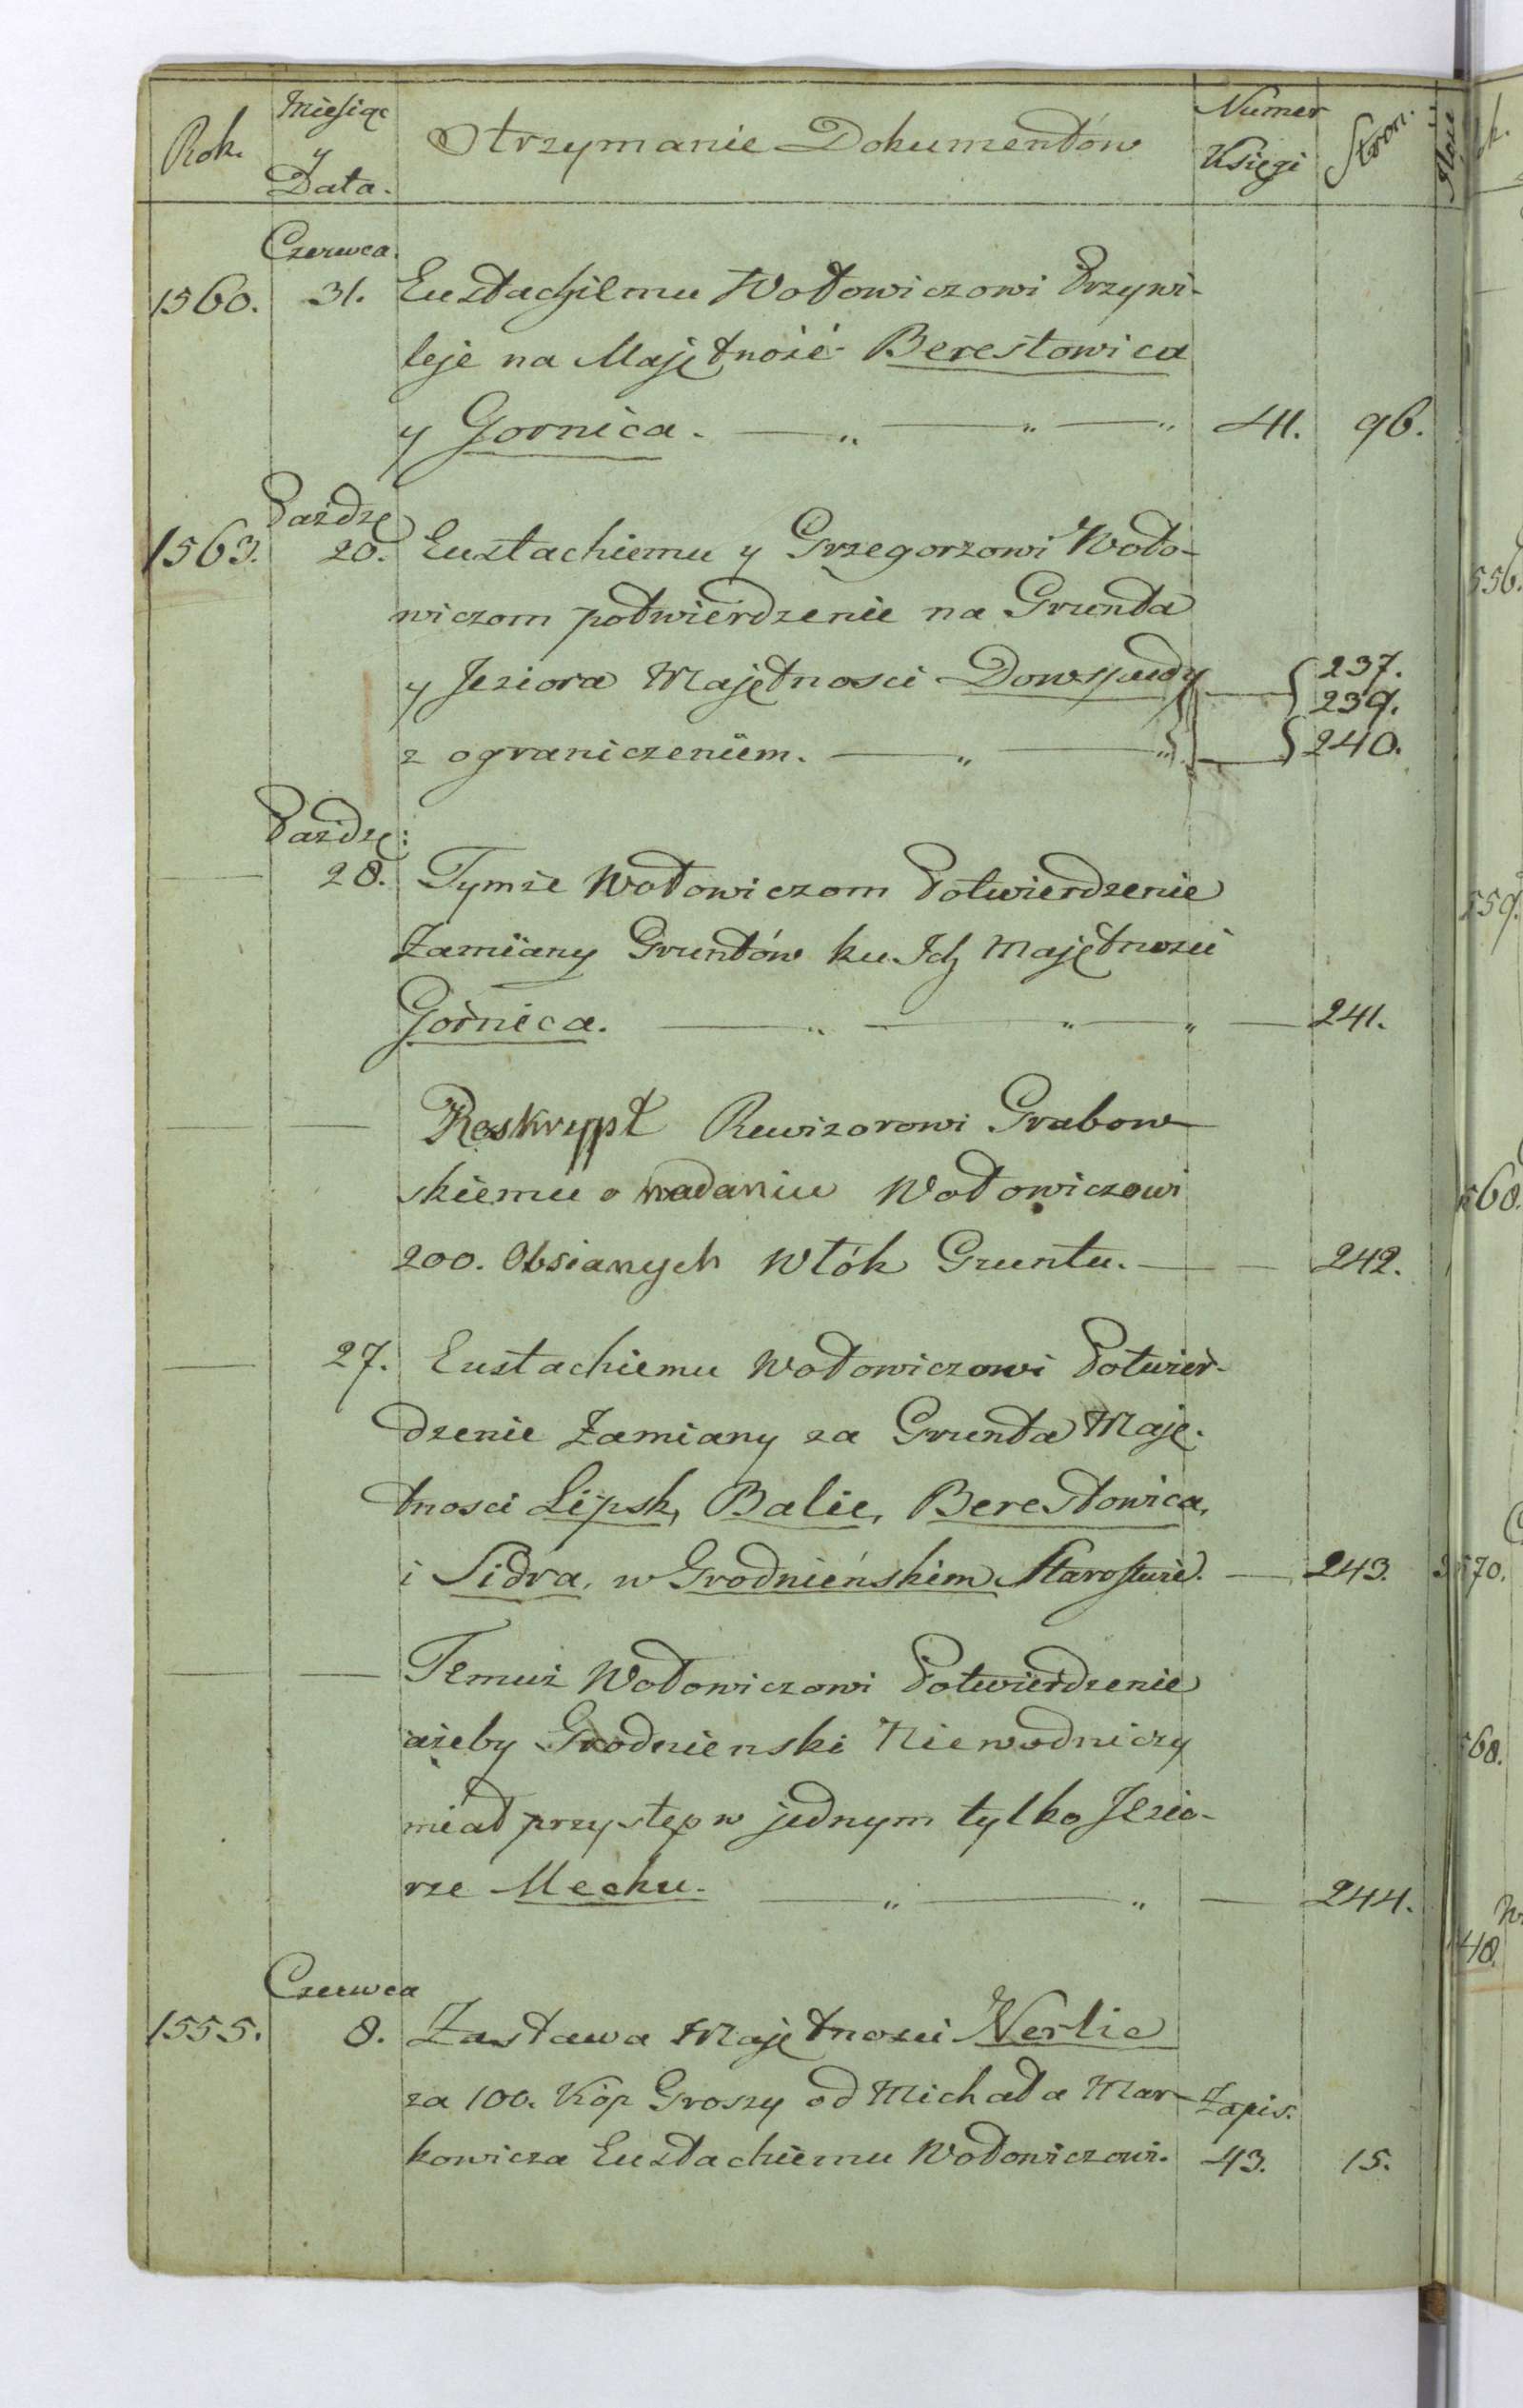 Rok. Miesiąc y Data. Otrzymanie Dokumentów Numer Księgi Stron.
Czerwca.
1560. 31. Eustachiemu Wołowiczowi Przywi-
leje na Majętność Berestowica
y Gornica. — „ — „ — „ 41. 96.
Paźdz
1563. 20. Eustachiemu y Grzegorzowi Woło-
wiczom potwierdzenie na Grunta
y Jeziora Majętnosci Dowspudy — { 237.
239.
z ograniczeniem. — „ — „ — { 240.
Paźdz:
— 28. Tymże Wołowiczom Potwierdzenie
Zamiany Gruntów ku Ich Majętnosci
Górnica. — „ — „ — „ — 241.
— — Reskrypt Rewizorowi Grabow-
skiemu o nadaniu Wołowiczowi
200. Obsianych Włók Gruntu. — — 242.
— 27. Eustachiemu Wołowiczowi Potwier-
dzenie Zamiany za Grunta Maję-
tnosci Lipsk, Balie, Berestowica,
i Sidra, w Grodnieńskim Starostwie. — 243.
— — Temuż Wołowiczowi Potwierdzenie
ażeby Grodnienski Niewodniczy
miał przystęp w jednym tylko Jezio-
rze Mecku. — „ — „ — 244.
Czerwca
1555. 8. Zastawa Majętnosci Nerlie
za 100. Kóp Groszy od Michała Mar- Zapis.
kowicza Eustachiemu Wołowiczowi. 43. 15.